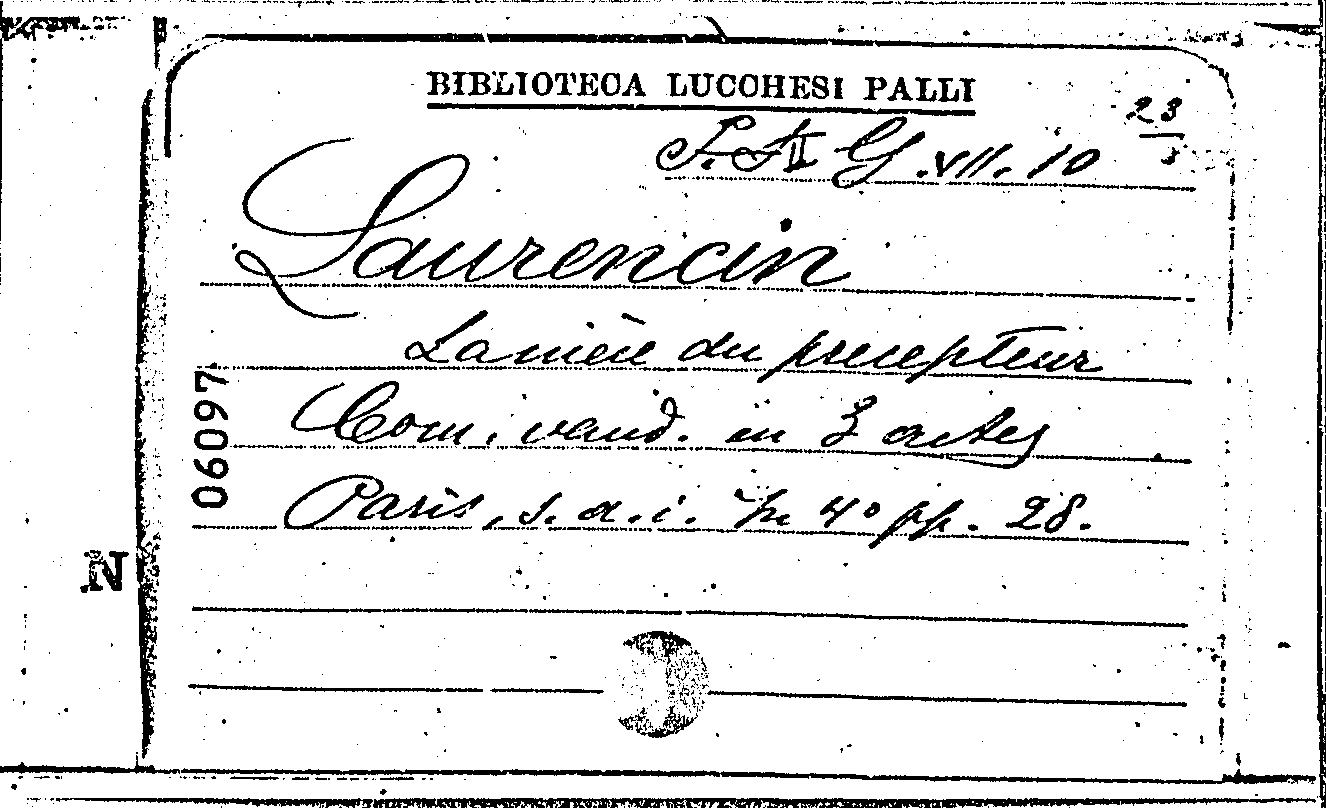 BIBLIOTECA LUCCHESI PALLI
23
3
G. VII. 10
Laurencin
La nièce du precepteur
Com. vaud. en 3 actes
Paris, s. d. i. In 4º pp. 28.
06097
N